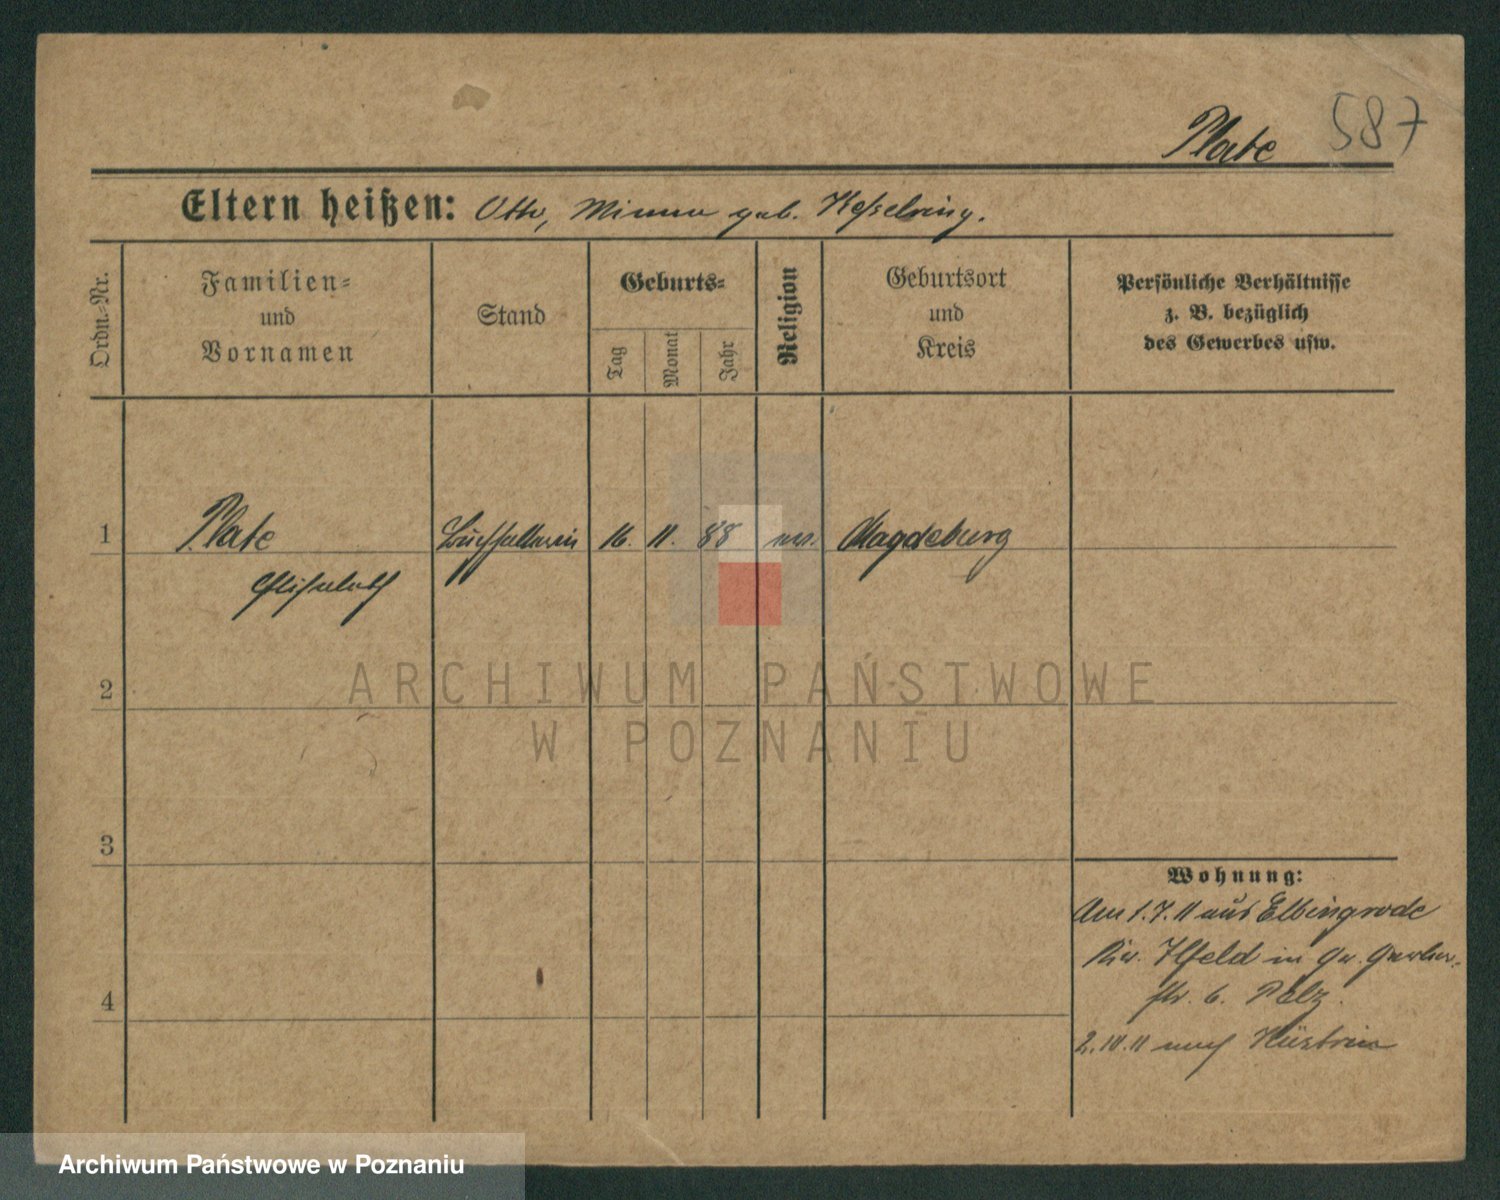 587
Plate
Eltern heißen: Otto, Minna geb. Kesselring.
Ordn.-Nr.
Familien-
und
Vornamen
Stand
Geburts-
Tag
Monat
Jahr
Religion
Geburtsort
und
Kreis
Persönliche Verhältnisse
z. B. bezüglich
des Gewerbes usw.
1 Plate Buchhalterin 16. 11. 88 ev. Magdeburg
Elisabeth
2
3
4
Wohnung:
Am 1.7.11 aus Elbingrode
Ilfeld in Gr. Gerber-
str. 6. Pelz.
2.10.11 nach Küstrin
ARCHIWUM PAŃSTWOWE
W POZNANIU
Archiwum Państwowe w Poznaniu